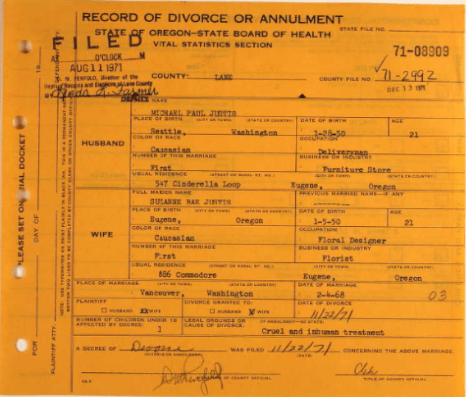 RECORD OF DIVORCE OR ANNULMENT
STATE OF OREGON-STATE BOARD OF HEALTH
VITAL STATISTICS SECTION
STATE FILE NO.
FILED
O'CLOCK M
AUG 11 1971
71-08909
COUNTY: LANE
COUNTY FILE NO.
71-2992
DEC 13 1971
DEPUTY
NAME
HUSBAND
MICHAEL PAUL JUSTIS
PLACE OF BIRTH (CITY OR TOWN) (STATE OR COUNTRY) DATE OF BIRTH AGE
Seattle, Washington 1-28-50 21
COLOR OR RACE OCCUPATION
Caucasian Deliveryman
NUMBER OF THIS MARRIAGE BUSINESS OR INDUSTRY
First Furniture Store
USUAL RESIDENCE (STREET OR RURAL RT. NO.) (CITY OR TOWN) (STATE)
547 Cinderella Loop Eugene, Oregon
FULL MAIDEN NAME PREVIOUS MARRIED NAME—IF ANY
WIFE
SUZANNE RAE JUSTIS
PLACE OF BIRTH (CITY OR TOWN) (STATE OR COUNTRY) DATE OF BIRTH AGE
Eugene, Oregon 1-5-50 21
COLOR OR RACE OCCUPATION
Caucasian Floral Designer
NUMBER OF THIS MARRIAGE BUSINESS OR INDUSTRY
First Florist
USUAL RESIDENCE (STREET OR RURAL RT. NO.) (CITY OR TOWN) (STATE)
886 Commodore Eugene, Oregon
PLACE OF MARRIAGE (CITY OR TOWN) (STATE OR COUNTRY) DATE OF MARRIAGE
Vancouver, Washington 2-6-68 03
PLAINTIFF DIVORCE GRANTED TO: DATE OF DIVORCE
HUSBAND XX WIFE HUSBAND X WIFE 11/22/71
NUMBER OF CHILDREN UNDER 18 AFFECTED BY DECREE 1
LEGAL GROUNDS OR CAUSE OF DIVORCE:
Cruel and inhuman treatment
A DECREE OF Divorce WAS FILED 11/22/71 CONCERNING THE ABOVE MARRIAGE.
SIGNATURE OF COUNTY OFFICIAL
TITLE OF COUNTY OFFICIAL
PLEASE SET ON TRIAL DOCKET
FOR DAY OF 19
PLAINTIFF ATTY.